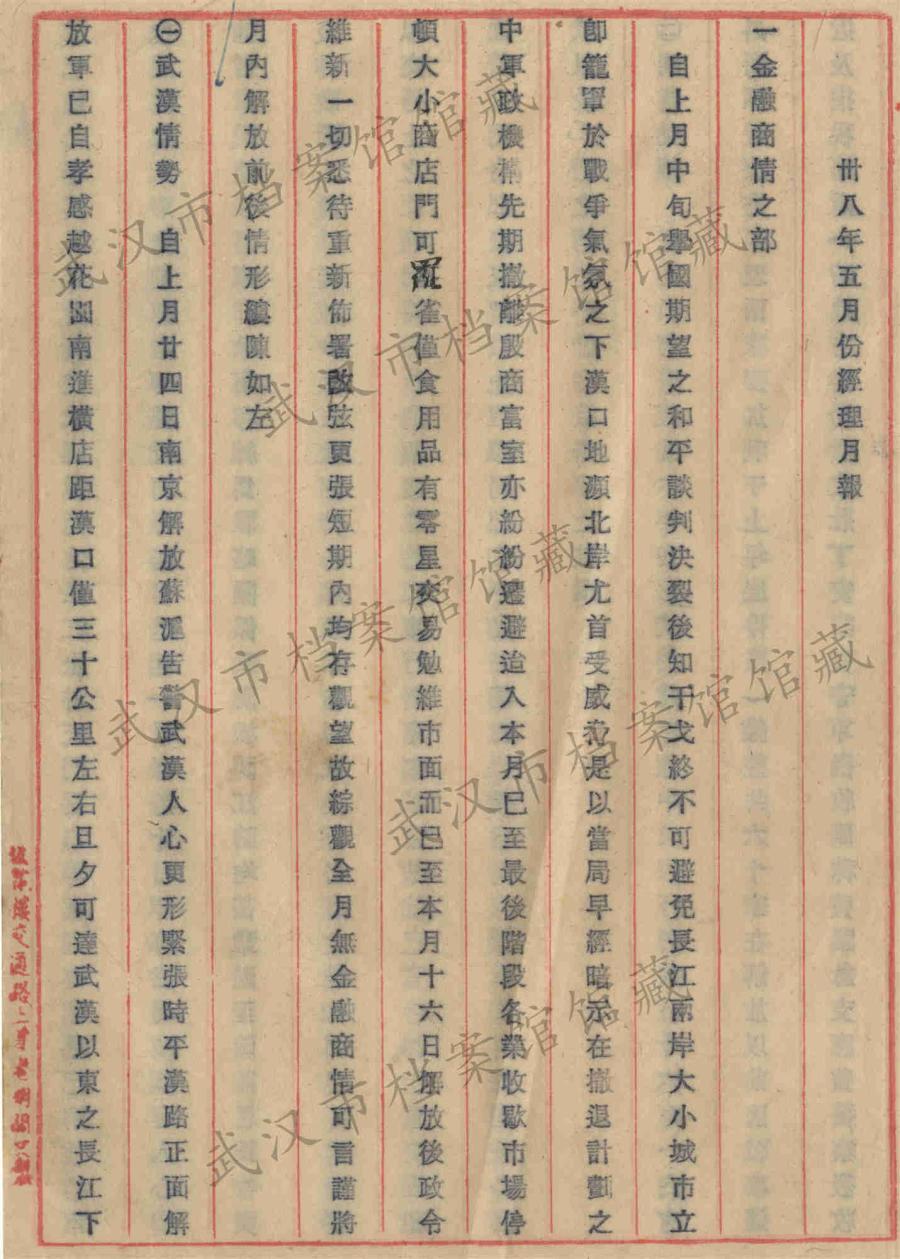 卅八年五月份經理月報
一金融商情之部
自上月中旬舉國期望之和平談判决裂後知干戈終不可避免長江兩岸大小城市立
卽籠罩於戰爭氣氛之下漢口地瀕北岸尤首受威脅是以當局早經暗示在撤退計劃之
中軍政機構先期撤離殷商富室亦紛紛遷避迨入本月已至最後階段各業收歇市場停
頓大小商店門可羅雀僅食用品有零星交易勉維市面而已至本月十六日解放後政令
維新一切悉待重新佈署改弦更張短期內均存觀望故綜觀全月無金融商情可言謹將
月內解放前後情形縷陳如左
㊀武漢情勢 自上月廿四日南京解放蘇滬告警武漢人心更形緊張時平漢路正面解
放軍已自孝感越花園南進橫店距漢口僅三十公里左右旦夕可達武漢以東之長江下
交通路
武汉市档案馆馆藏
武汉市档案馆馆藏
武汉市档案馆馆藏
武汉市档案馆馆藏
武汉市档案馆馆藏